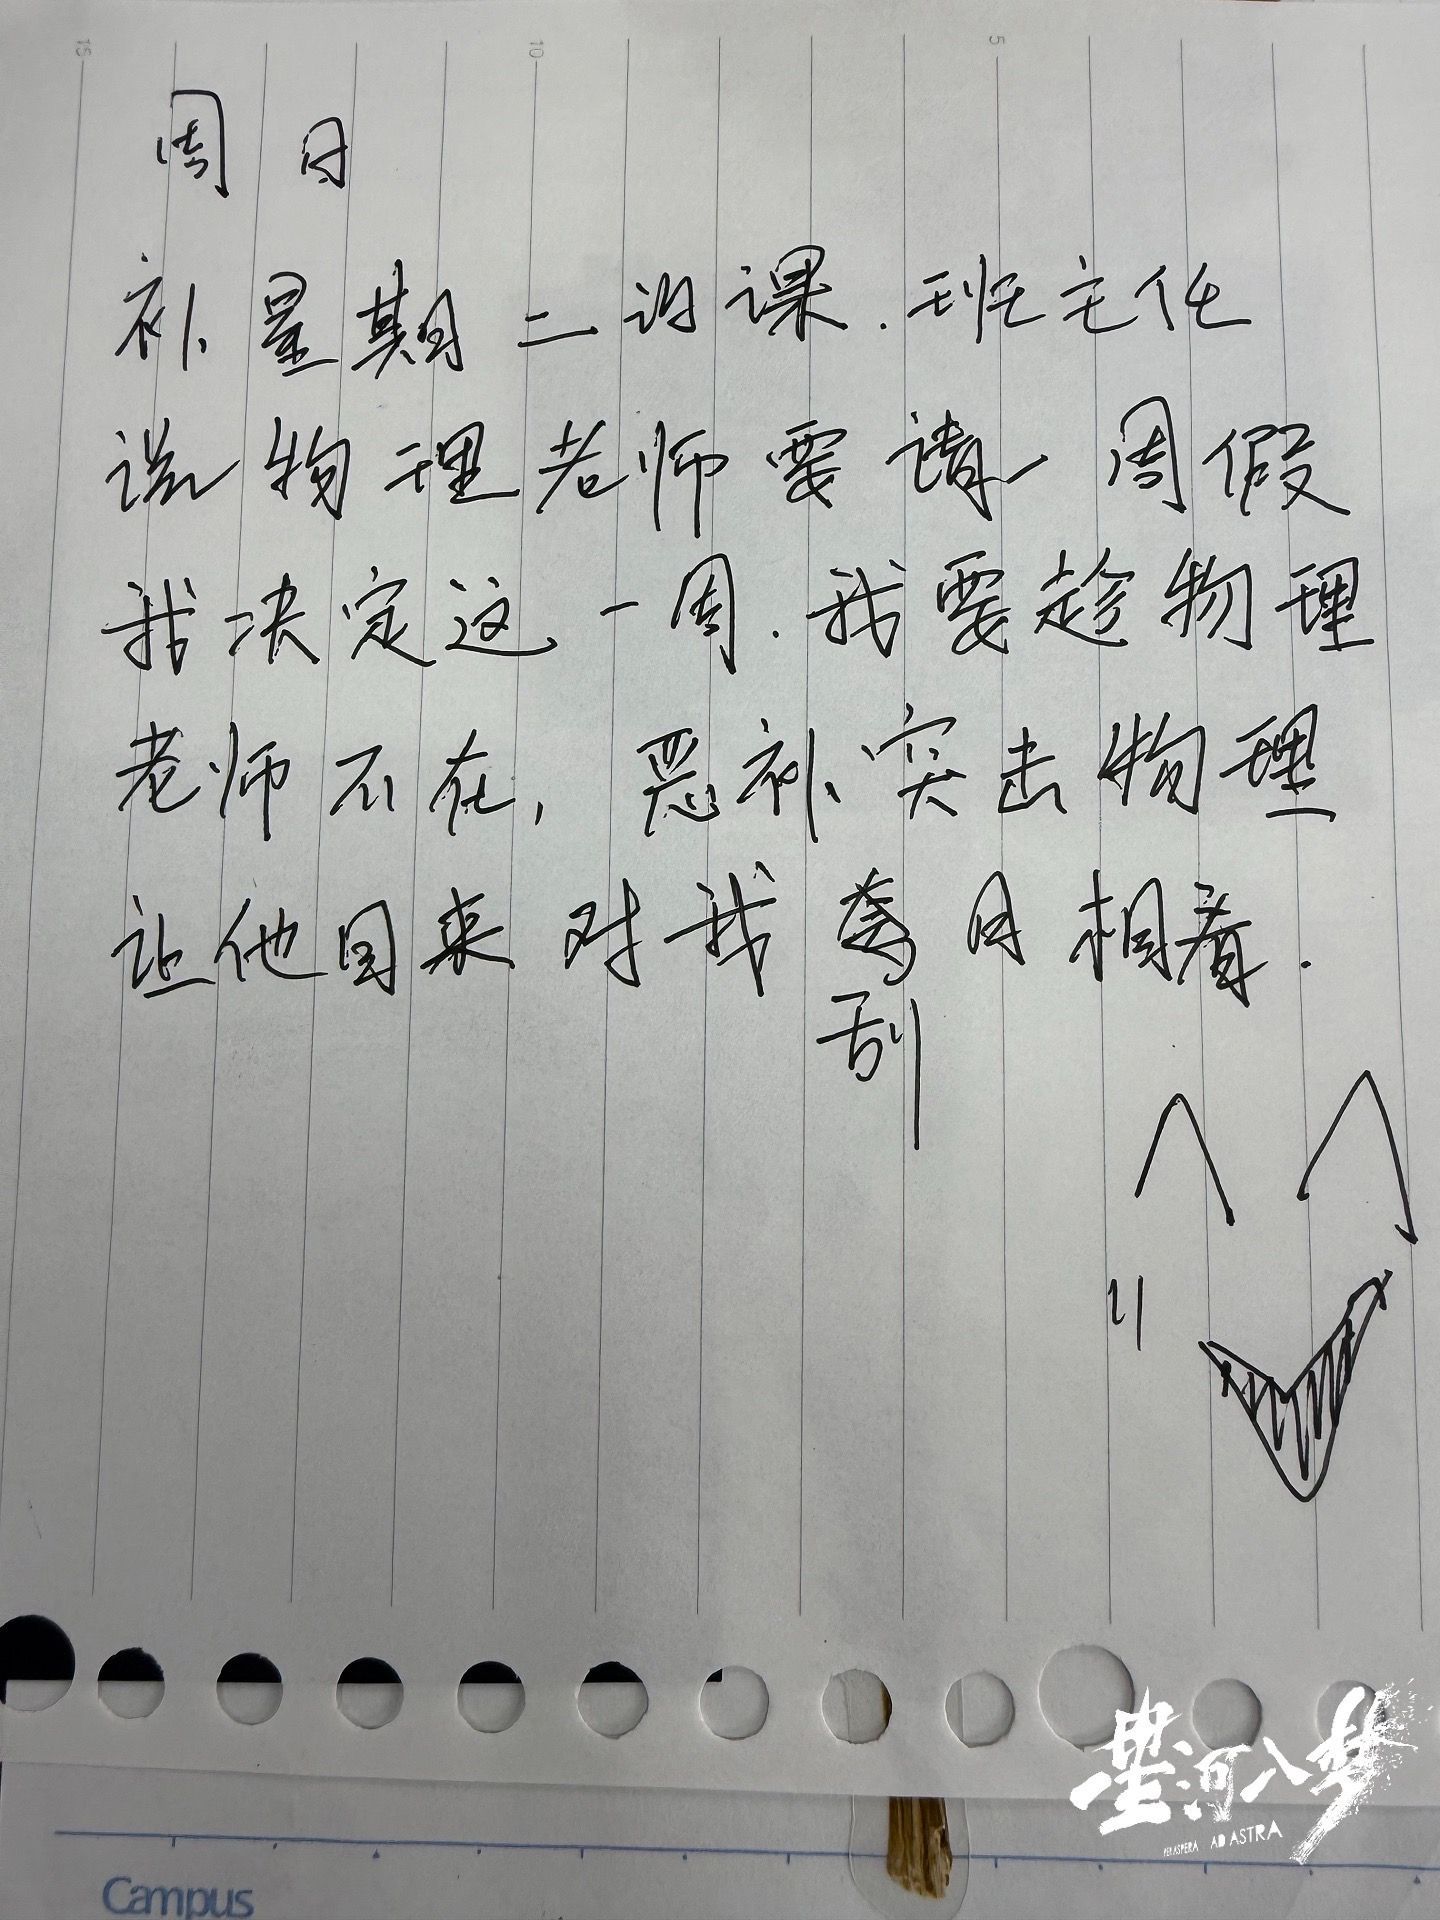 周日
补星期二的课.班主任
说物理老师要请一周假
我决定这一周.我要趁物理
老师不在,恶补突击物理
让他回来对我刮目相看.
刮
星河入梦
PER ASPERA AD ASTRA
15
10
5
Campus